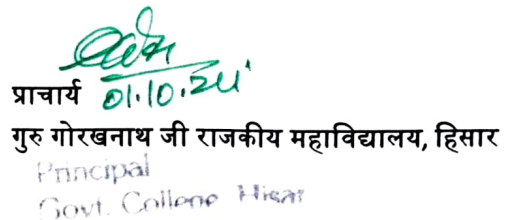 प्राचार्य 01.10.24
गुरु गोरखनाथ जी राजकीय महाविद्यालय, हिसार
Principal
Govt. College Hisar